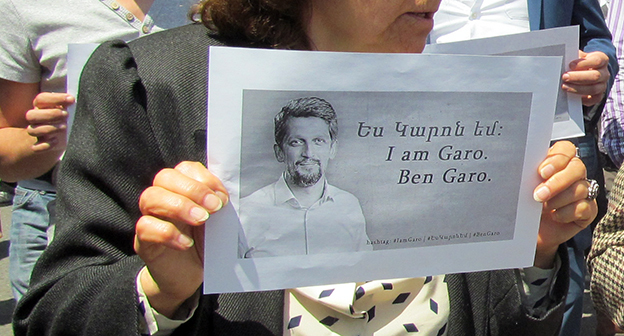 Ես Կարոն եմ:
I am Garo.
Ben Garo.
hashtag: #IamGaro / #ԵսԿարոնԵմ / #BenGaro